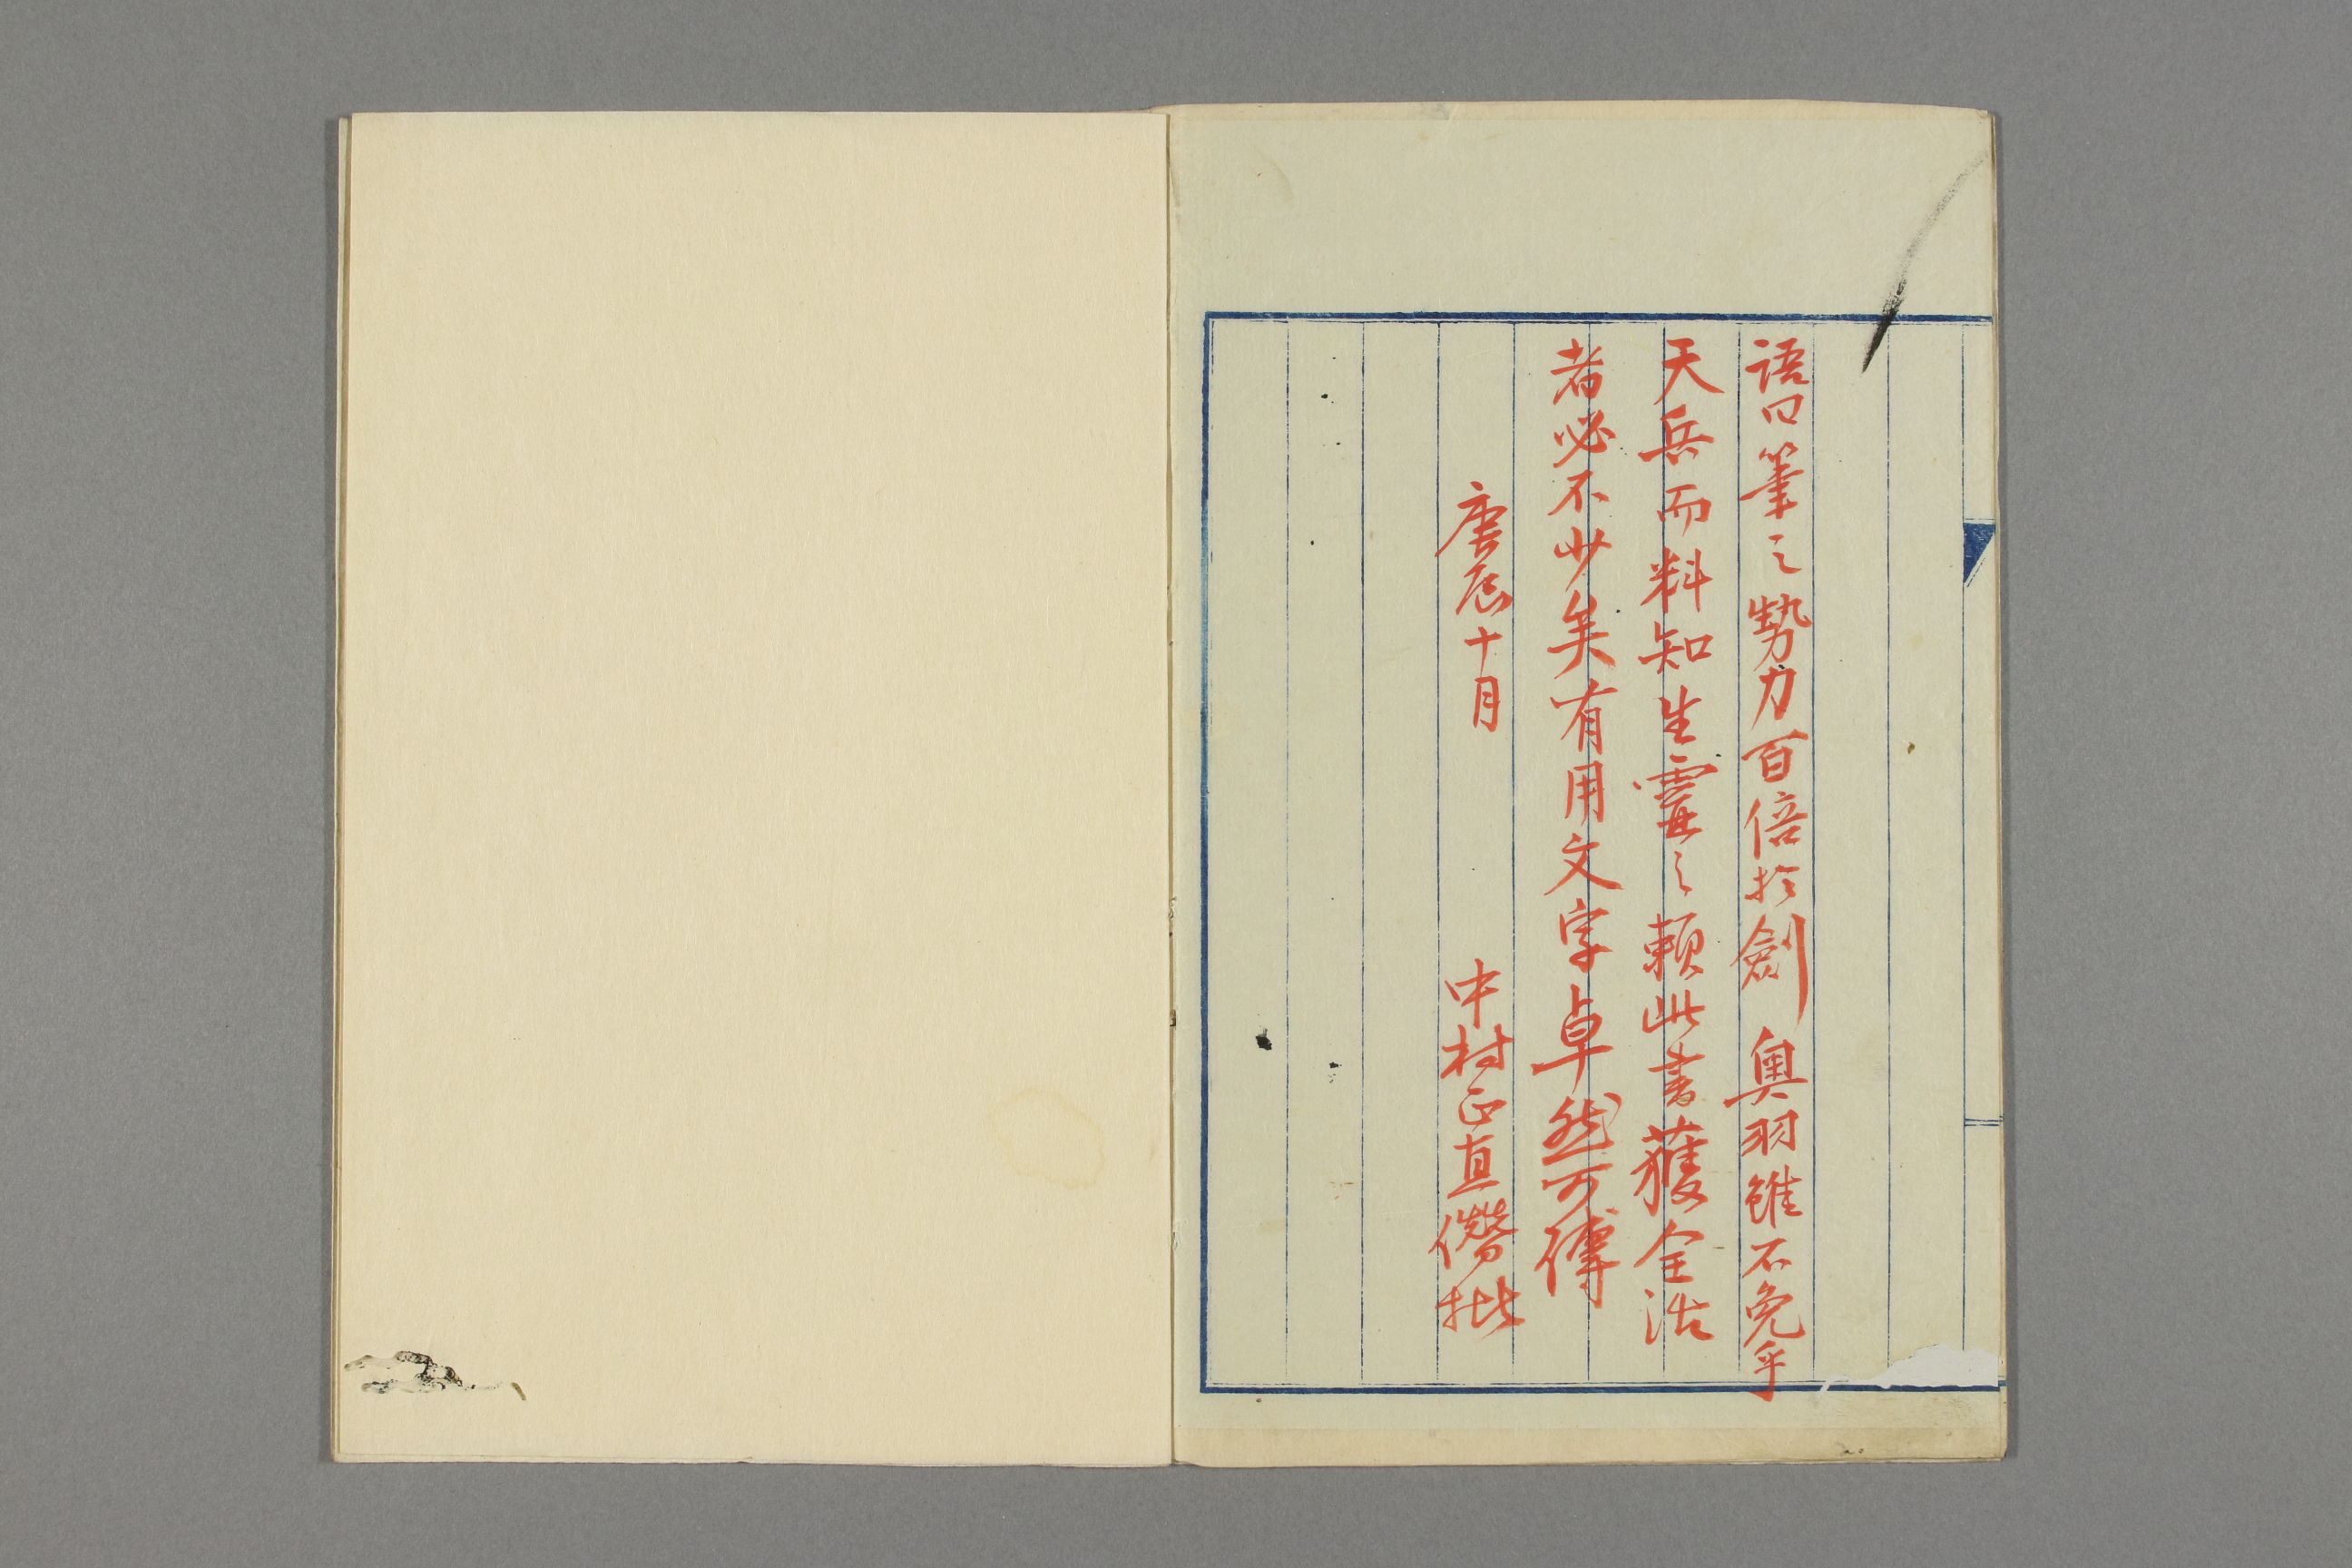 語曰筆之勢力百倍於劍奧羽雖不免乎
天兵而料知生靈之賴此書獲全活
者必不少矣有用文字卓然可傳
庚辰十月　中村正直僭批